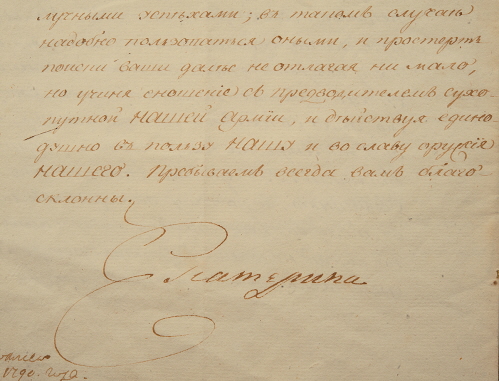 лучными успѣхами; въ такомъ случаѣ
надобно пользоваться оными, и простерть
поиски ваши далѣе не отлагая ни мало,
но учиня сношенiе съ предводителемъ сухо-
путной НАШЕЙ Армiи, и дѣйствуя едино-
душно въ пользу НАШУ и во славу оружiя
НАШЕГО. Пребываемъ всегда вамъ благо-
склонны.
Екатерина
1790. года.